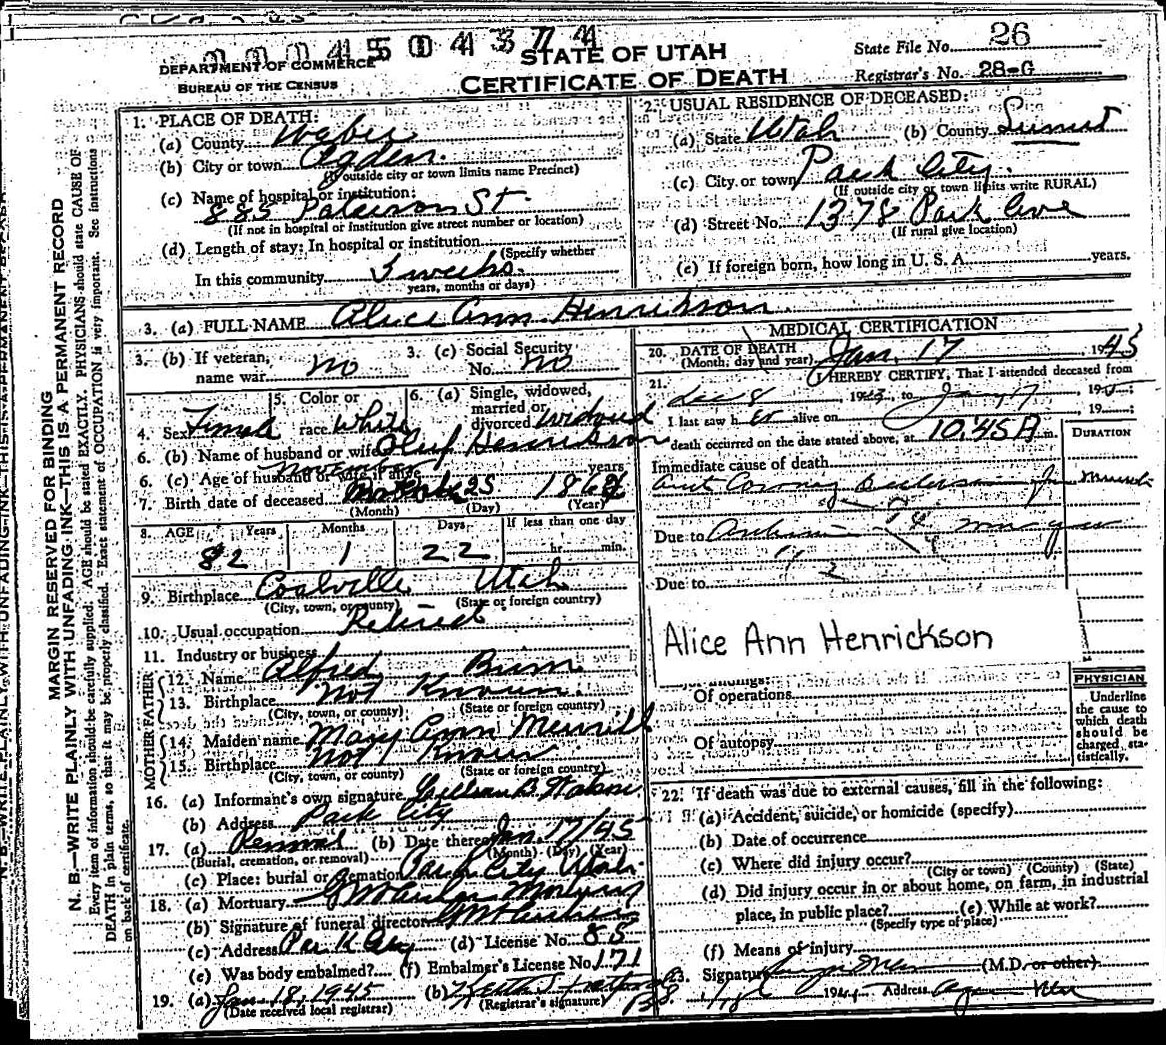 00045004374
STATE OF UTAH
CERTIFICATE OF DEATH
DEPARTMENT OF COMMERCE
BUREAU OF THE CENSUS
State File No. 26
Registrar's No. 28-G
MARGIN RESERVED FOR BINDING
N. B.—WRITE PLAINLY WITH UNFADING INK—THIS IS A PERMANENT RECORD
Every item of information should be carefully supplied. AGE should be stated EXACTLY. PHYSICIANS should state CAUSE OF
DEATH in plain terms, so that it may be properly classified. Exact statement of OCCUPATION is very important. See instructions
on back of certificate.
1. PLACE OF DEATH:
(a) County Weber
(b) City or town Ogden.
(If outside city or town limits name Precinct)
(c) Name of hospital or institution:
885 Paterson St.
(If not in hospital or institution give street number or location)
(d) Length of stay: In hospital or institution
(Specify whether
In this community 3 weeks.
years, months or days)
2. USUAL RESIDENCE OF DECEASED:
(a) State Utah (b) County Summit
(c) City or town Park City.
(If outside city or town limits write RURAL)
(d) Street No. 1378 Park Ave
(If rural give location)
(e) If foreign born, how long in U. S. A. years.
3. (a) FULL NAME Alice Ann Henrickson
3. (b) If veteran, name war no
3. (c) Social Security No. no
4. Sex Female
5. Color or race White
6. (a) Single, widowed, married or divorced Widowed
6. (b) Name of husband or wife Oluf Henrickson
6. (c) Age of husband or wife if alive years
7. Birth date of deceased November 25 1862
(Month) (Day) (Year)
8. AGE Years Months Days If less than one day
82 1 22 hr. min.
9. Birthplace Coalville Utah
(City, town, or county) (State or foreign country)
10. Usual occupation Retired
11. Industry or business
FATHER
12. Name Alfred
13. Birthplace Not Known.
(City, town, or county) (State or foreign country)
MOTHER
14. Maiden name Mary Ann Merrill
15. Birthplace Not Known
(City, town, or county) (State or foreign country)
16. (a) Informant's own signature
(b) Address Park City
17. (a) Removal (b) Date thereof Jan. 17/45
(Burial, cremation, or removal) (Month) (Day) (Year)
(c) Place: burial or cremation Park City Utah.
18. (a) Mortuary
(b) Signature of funeral director
(c) Address Park City (d) License No. 85
(e) Was body embalmed? (f) Embalmer's License No. 171
19. (a) Jan. 18, 1945 (b)
(Date received local registrar) (Registrar's signature)
MEDICAL CERTIFICATION
20. DATE OF DEATH
(Month, day and year) Jan. 17, 1945
21. I HEREBY CERTIFY, That I attended deceased from
Dec 8 19 to Jan 17 194
I last saw her alive on 19
death occurred on the date stated above, at 10.45 A m.
DURATION
Immediate cause of death
Due to
Due to
Alice Ann Henrickson
findings:
Of operations
Of autopsy
PHYSICIAN
Underline
the cause to
which death
should be
charged sta-
tistically.
22. If death was due to external causes, fill in the following:
(a) Accident, suicide, or homicide (specify)
(b) Date of occurrence
(c) Where did injury occur?
(City or town) (County) (State)
(d) Did injury occur in or about home, on farm, in industrial
place, in public place? (e) While at work?
(Specify type of place)
(f) Means of injury
23. Signature (M.D. or other)
194 Address